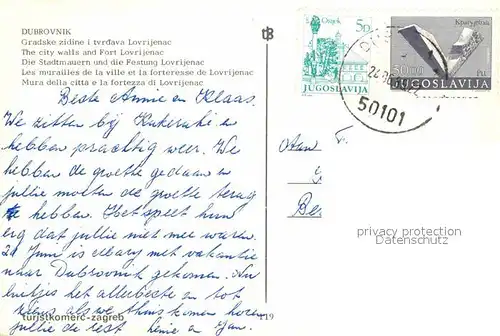 DUBROVNIK
Gradske zidine i tvrđava Lovrijenac
The city walls and Fort Lovrijenac
Die Stadtmauern und die Festung Lovrijenac
Les murailles de la ville et la forteresse de Lovrijenac
Mura della citta e la fortezza di Lovrijenac
Osijek
5.-
JUGOSLAVIJA
30.00
JUGOSLAVIJA
50101
Beste Annie en Klaas.
We zitten bij en
hebben prachtig weer. We
hebben de groetje gedaan en
jullie moeten de groetje terug
hebben. Het speet hun
erg dat jullie niet mee waren.
21 Juni is met vakantie
naar Dubrovnik gekomen. Nu
luitjes het allerbeste en tot
ziens als we thuis komen horen
jullie de rest en Jan.
Aan F.
Be
privacy protection
Datenschutz
turistkomerc-zagreb
19